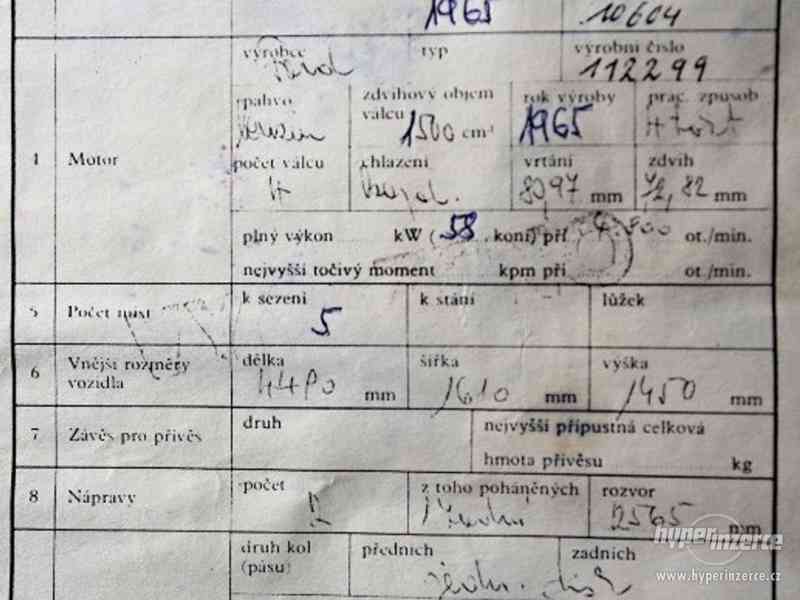 1965 10604
výrobce typ výrobní číslo
Ford 112299
palivo zdvihový objem válců rok výroby prac. způsob
1500 cm³ 1965 4
4 Motor
počet válců chlazení vrtání zdvih
4 kapal. 80,97 mm 72,82 mm
plný výkon kW (58 koní) při ot./min.
nejvyšší točivý moment kpm při ot./min.
5 Počet míst k sezení k stání lůžek
5
6 Vnější rozměry vozidla délka šířka výška
4480 mm 1610 mm 1450 mm
7 Závěs pro přívěs druh nejvyšší přípustná celková
hmota přívěsu kg
8 Nápravy počet z toho poháněných rozvor
2 2565 mm
druh kol (pásu) předních zadních
hyperinzerce
www.hyperinzerce.cz